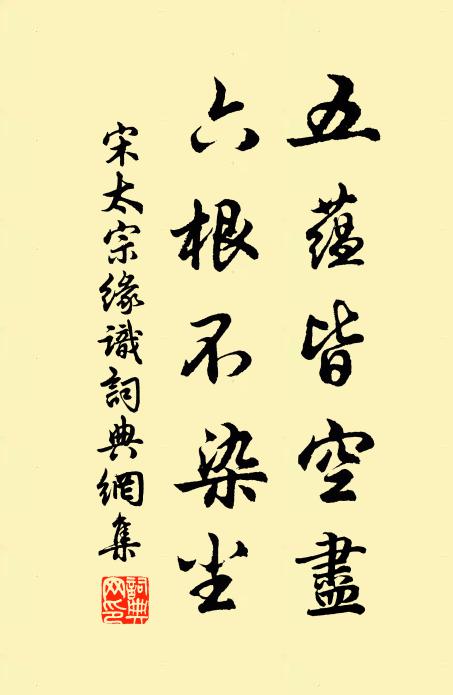 五蘊皆空盡
六根不染尘
宋太宗緣識詞典網集
詞典网印